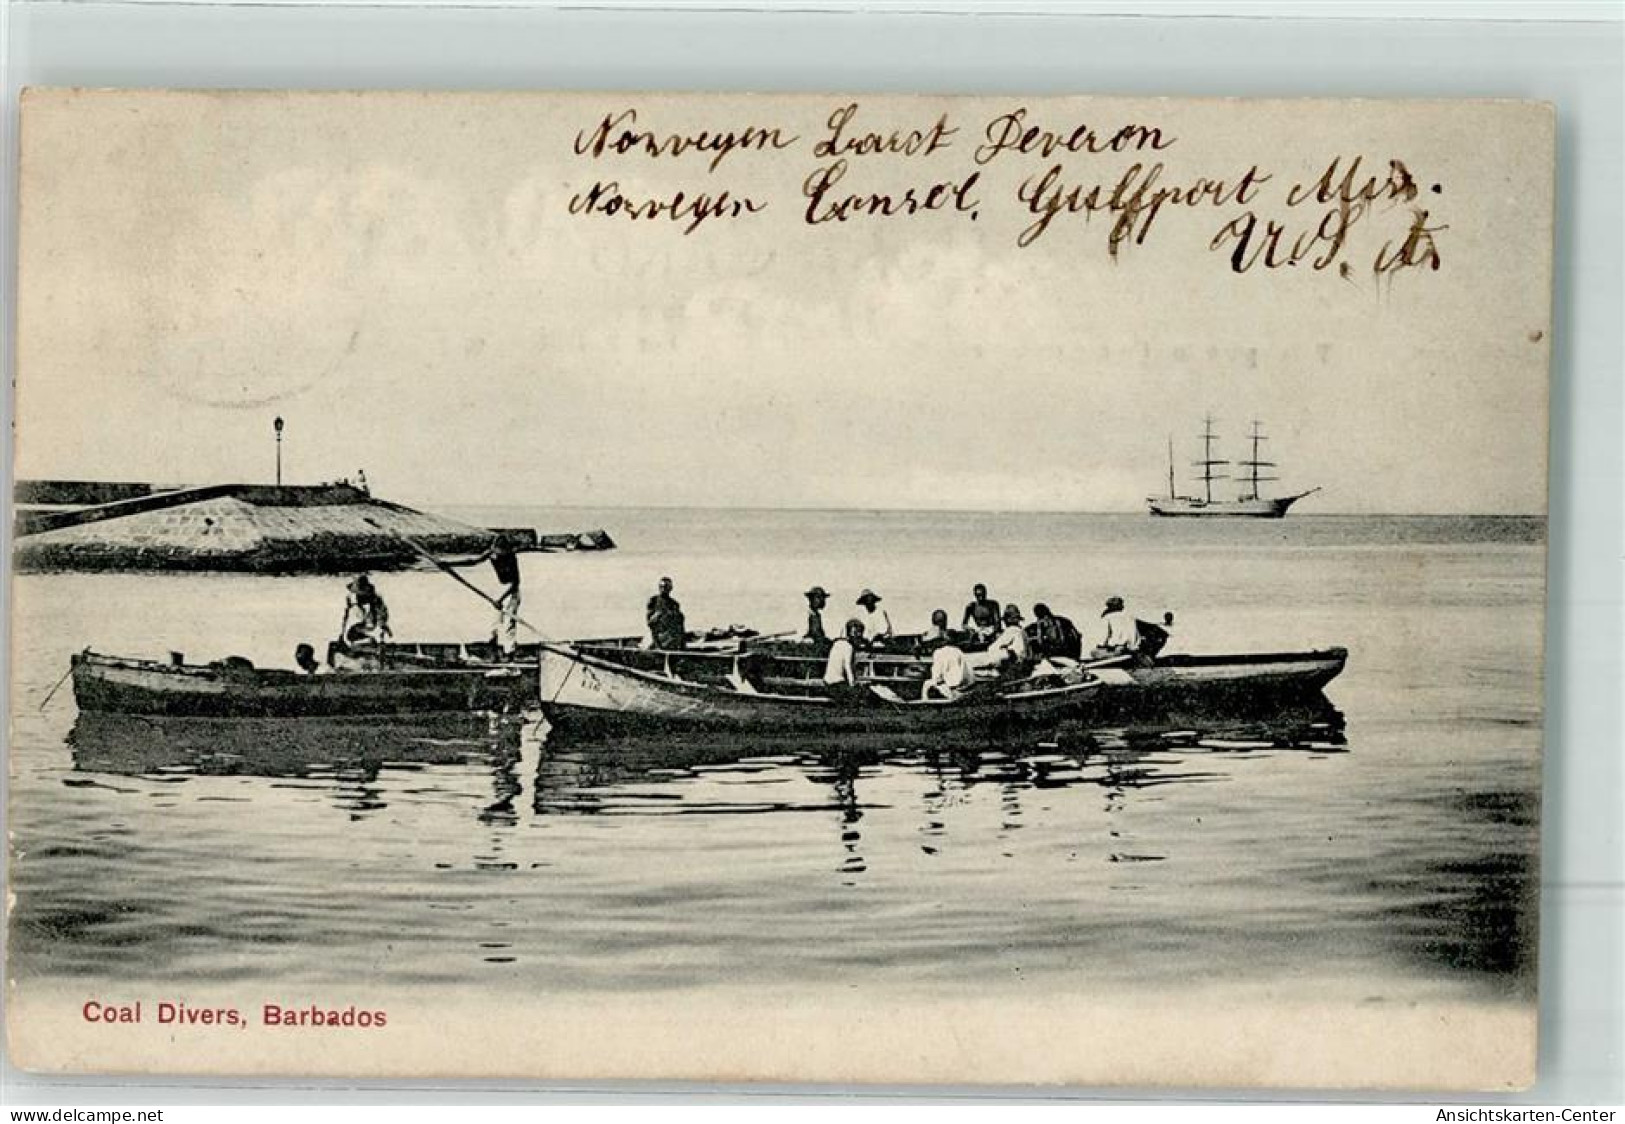 Norwegen Barct Deveron
Norwegen Consol. Gulfport Miss.
U.S. A.
116
Coal Divers, Barbados
www.delcampe.net
Ansichtskarten-Center